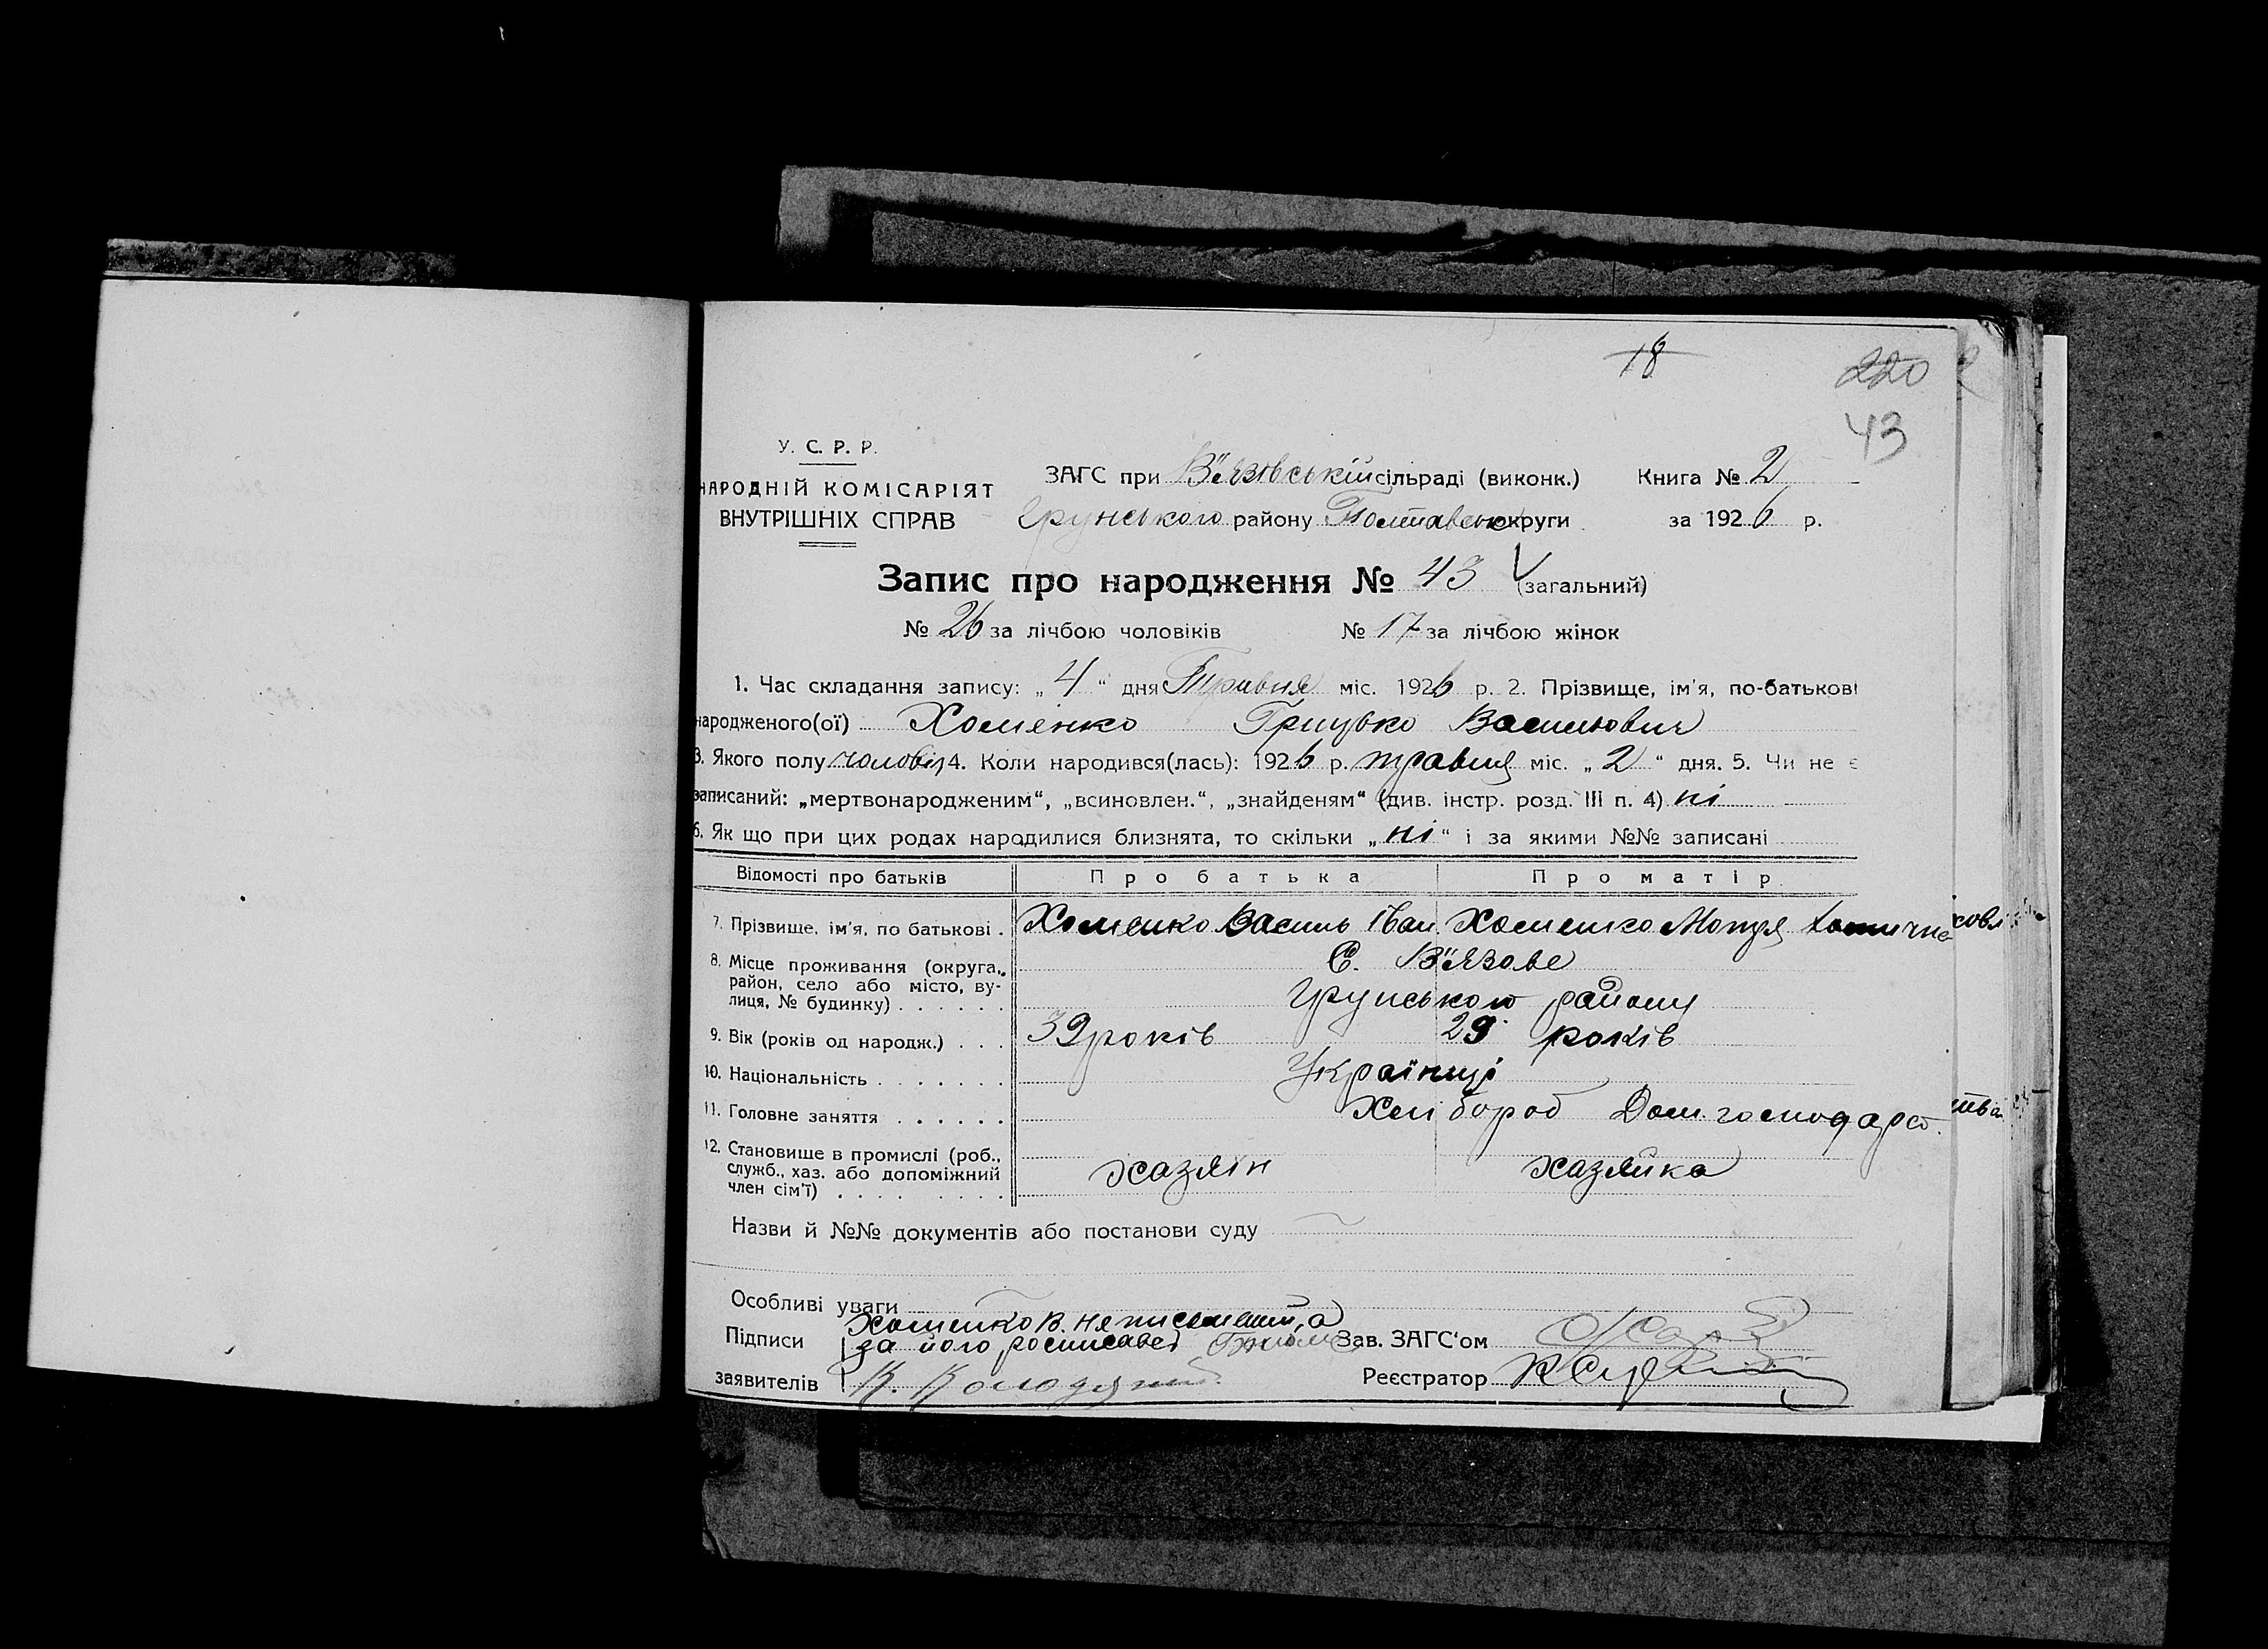 18
220
43
У. С. Р. Р.
НАРОДНІЙ КОМІСАРІЯТ
ВНУТРІШНІХ СПРАВ
ЗАГС при В"язовській сільраді (виконк.) Книга № 2
Грунського району Полтавськ округи за 1926 р.
Запис про народження № 43 (загальний)
№ 26 за лічбою чоловіків № 17 за лічбою жінок
1. Час складання запису: „4“ дня Травня міс. 1926 р. 2. Прізвище, ім'я, по-батькові
народженого(ої) Хоменко Грицько Васильович
3. Якого полу чоловіч 4. Коли народився(лась): 1926 р. травня міс. „2“ дня. 5. Чи не є
записаний: „мертвонародженим“, „всиновлен.“, „знайденям“ (див. інстр. розд. III п. 4) ні
6. Як що при цих родах народилися близнята, то скільки „ні“ і за якими №№ записані
Відомості про батьків Про батька Про матір
7. Прізвище, ім'я, по батькові . Хоменко Василь Іван. Хоменко Мотря
8. Місце проживання (округа, район, село або місто, вулиця, № будинку) . . . . . . С. В"язове
Грунського району
9. Вік (років од народж.) . . . 39 років 29 років
10. Національність . . . . . . . Українці
11. Головне заняття . . . . . . Хлібороб Дом. господарст.
12. Становище в промислі (роб., служб., хаз. або допоміжний член сім'ї) . . . . . . . . . хазяін хазяйка
Назви й №№ документів або постанови суду
Особливі уваги
Хоменко В. неписьменний, а
Підписи за його росписавсь Зав. ЗАГС'ом
заявителів К. Колодяжний Реєстратор